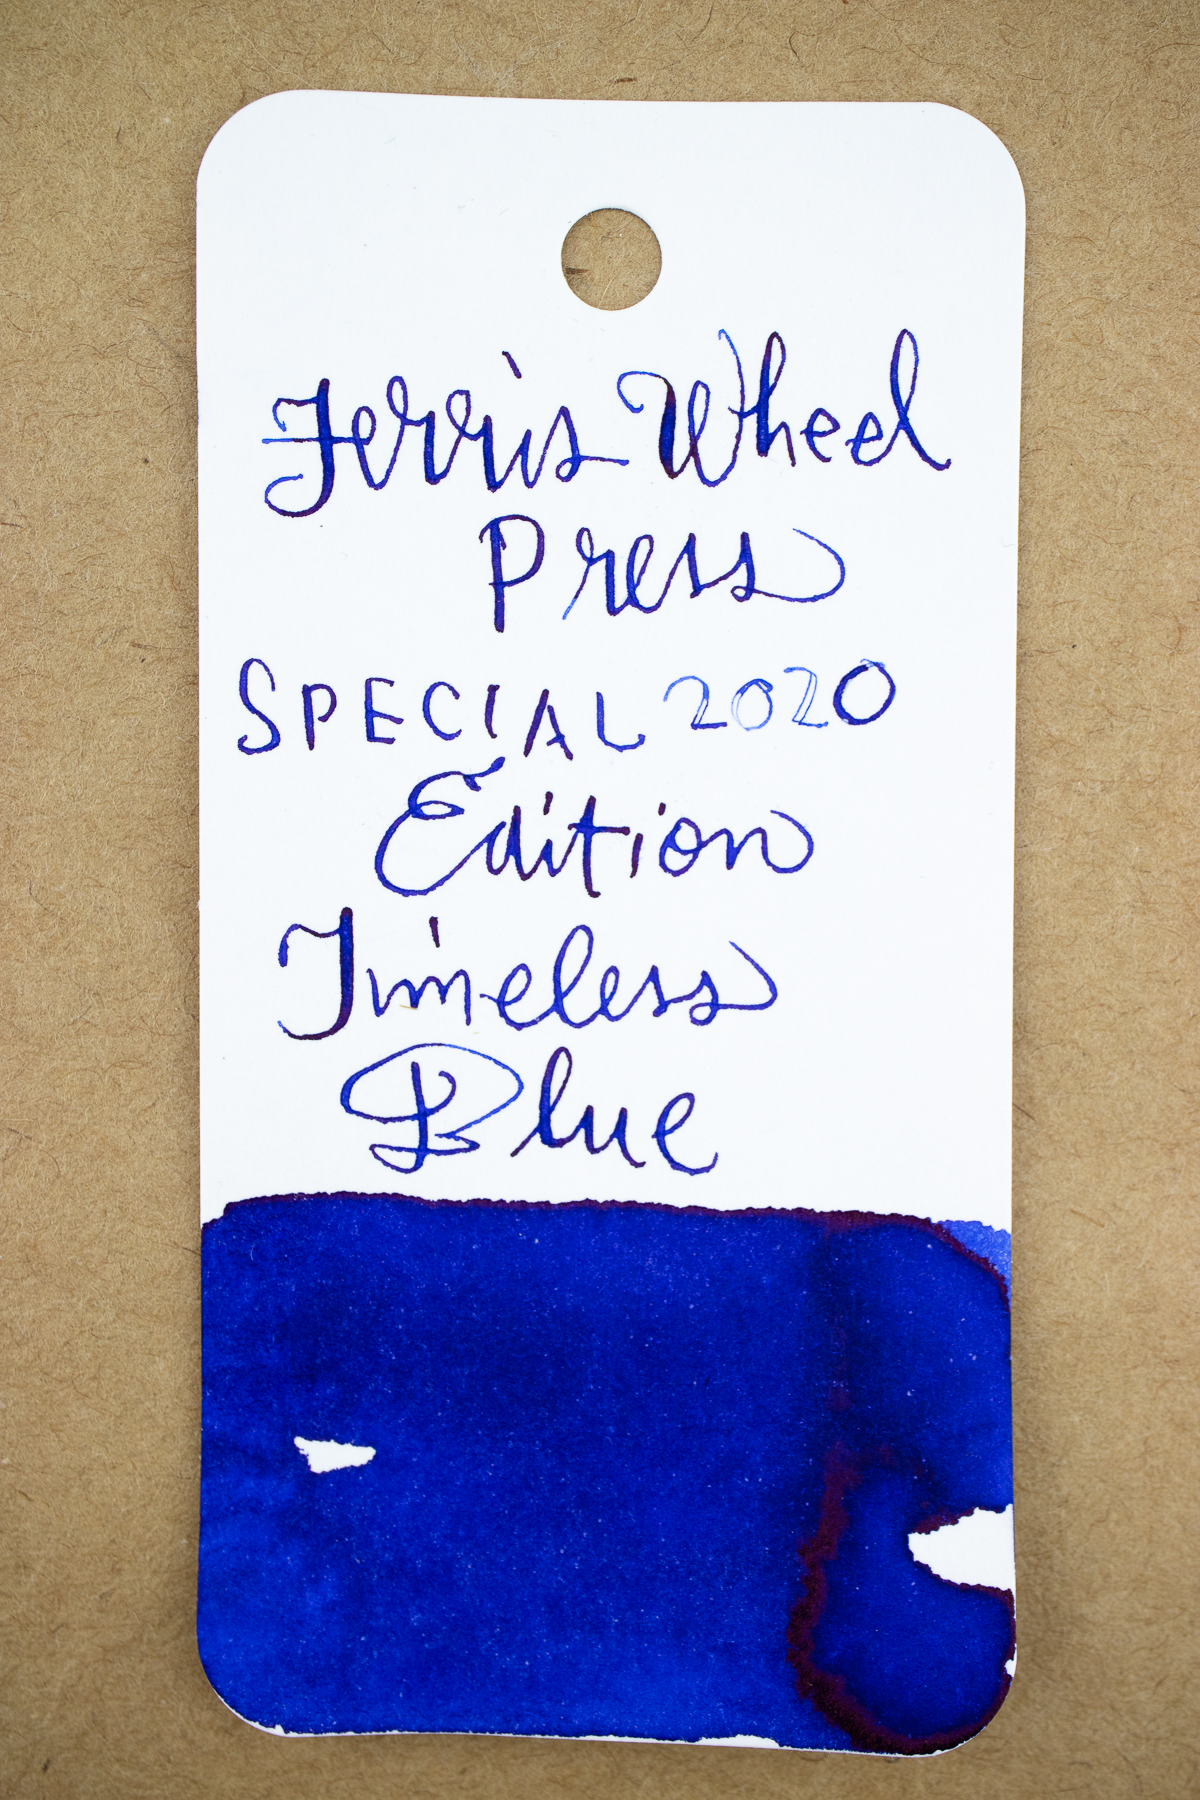 Ferris Wheel
Press
SPECIAL 2020
Edition
Timeless
Blue